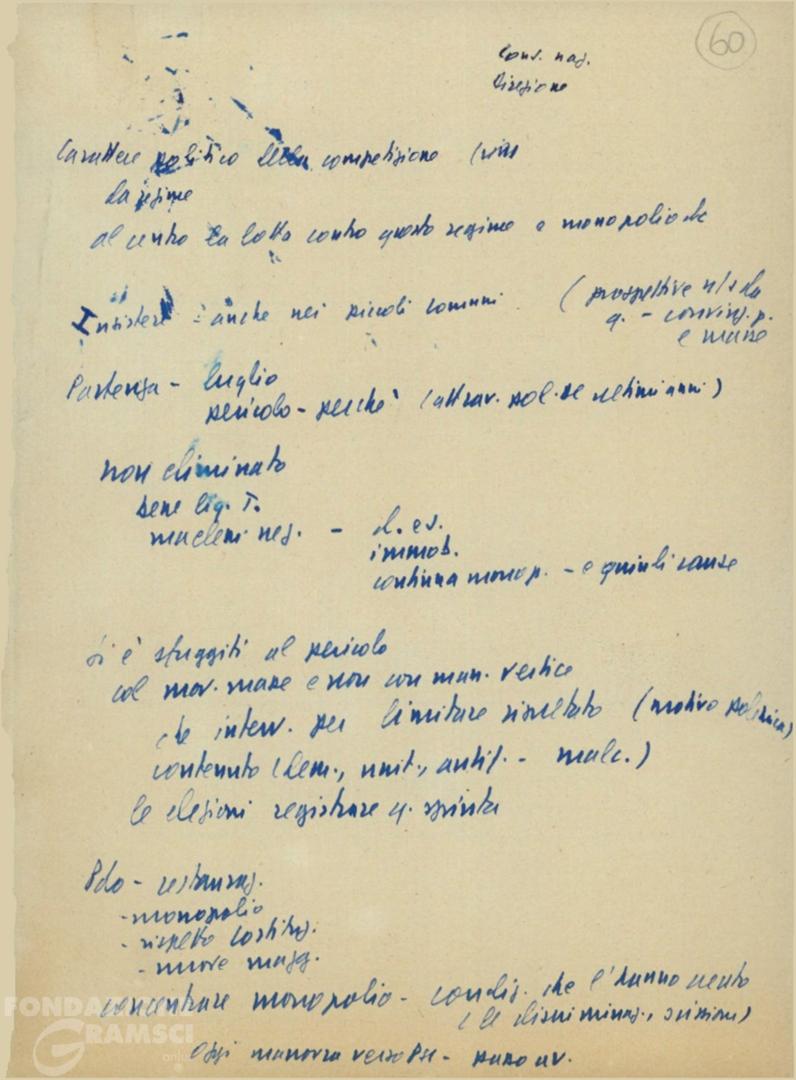 60
Conv. naz.
Direzione
Carattere politico della competizione (crisi
da regime
al centro la lotta contro questo regime e monopolio dc
Insistere: anche nei piccoli comuni (prospettive
q. - convinz. p.
e masse
Partenza - luglio
pericolo - perché (attrav. pol. DC ultimi anni)
non eliminato
bene liq. T.
ma elem. neg. - d. es.
immob.
continua monop. - e quindi cause
Si è sfuggiti al pericolo
col mov. masse e non con man. vertice
che interv. per limitare risultato (motivo politica)
contenuto (dem., unit., antif. - malc.)
le elezioni registrare q. spinta
Pdo - restauraz.
- monopolio
- rispetto costituz.
- nuove magg.
concentrare monopolio - condiz. che l'hanno creato
(le discriminaz., scissioni)
Oggi manovra verso PSI - passo av.
FONDAZIONE
GRAMSCI
onlus